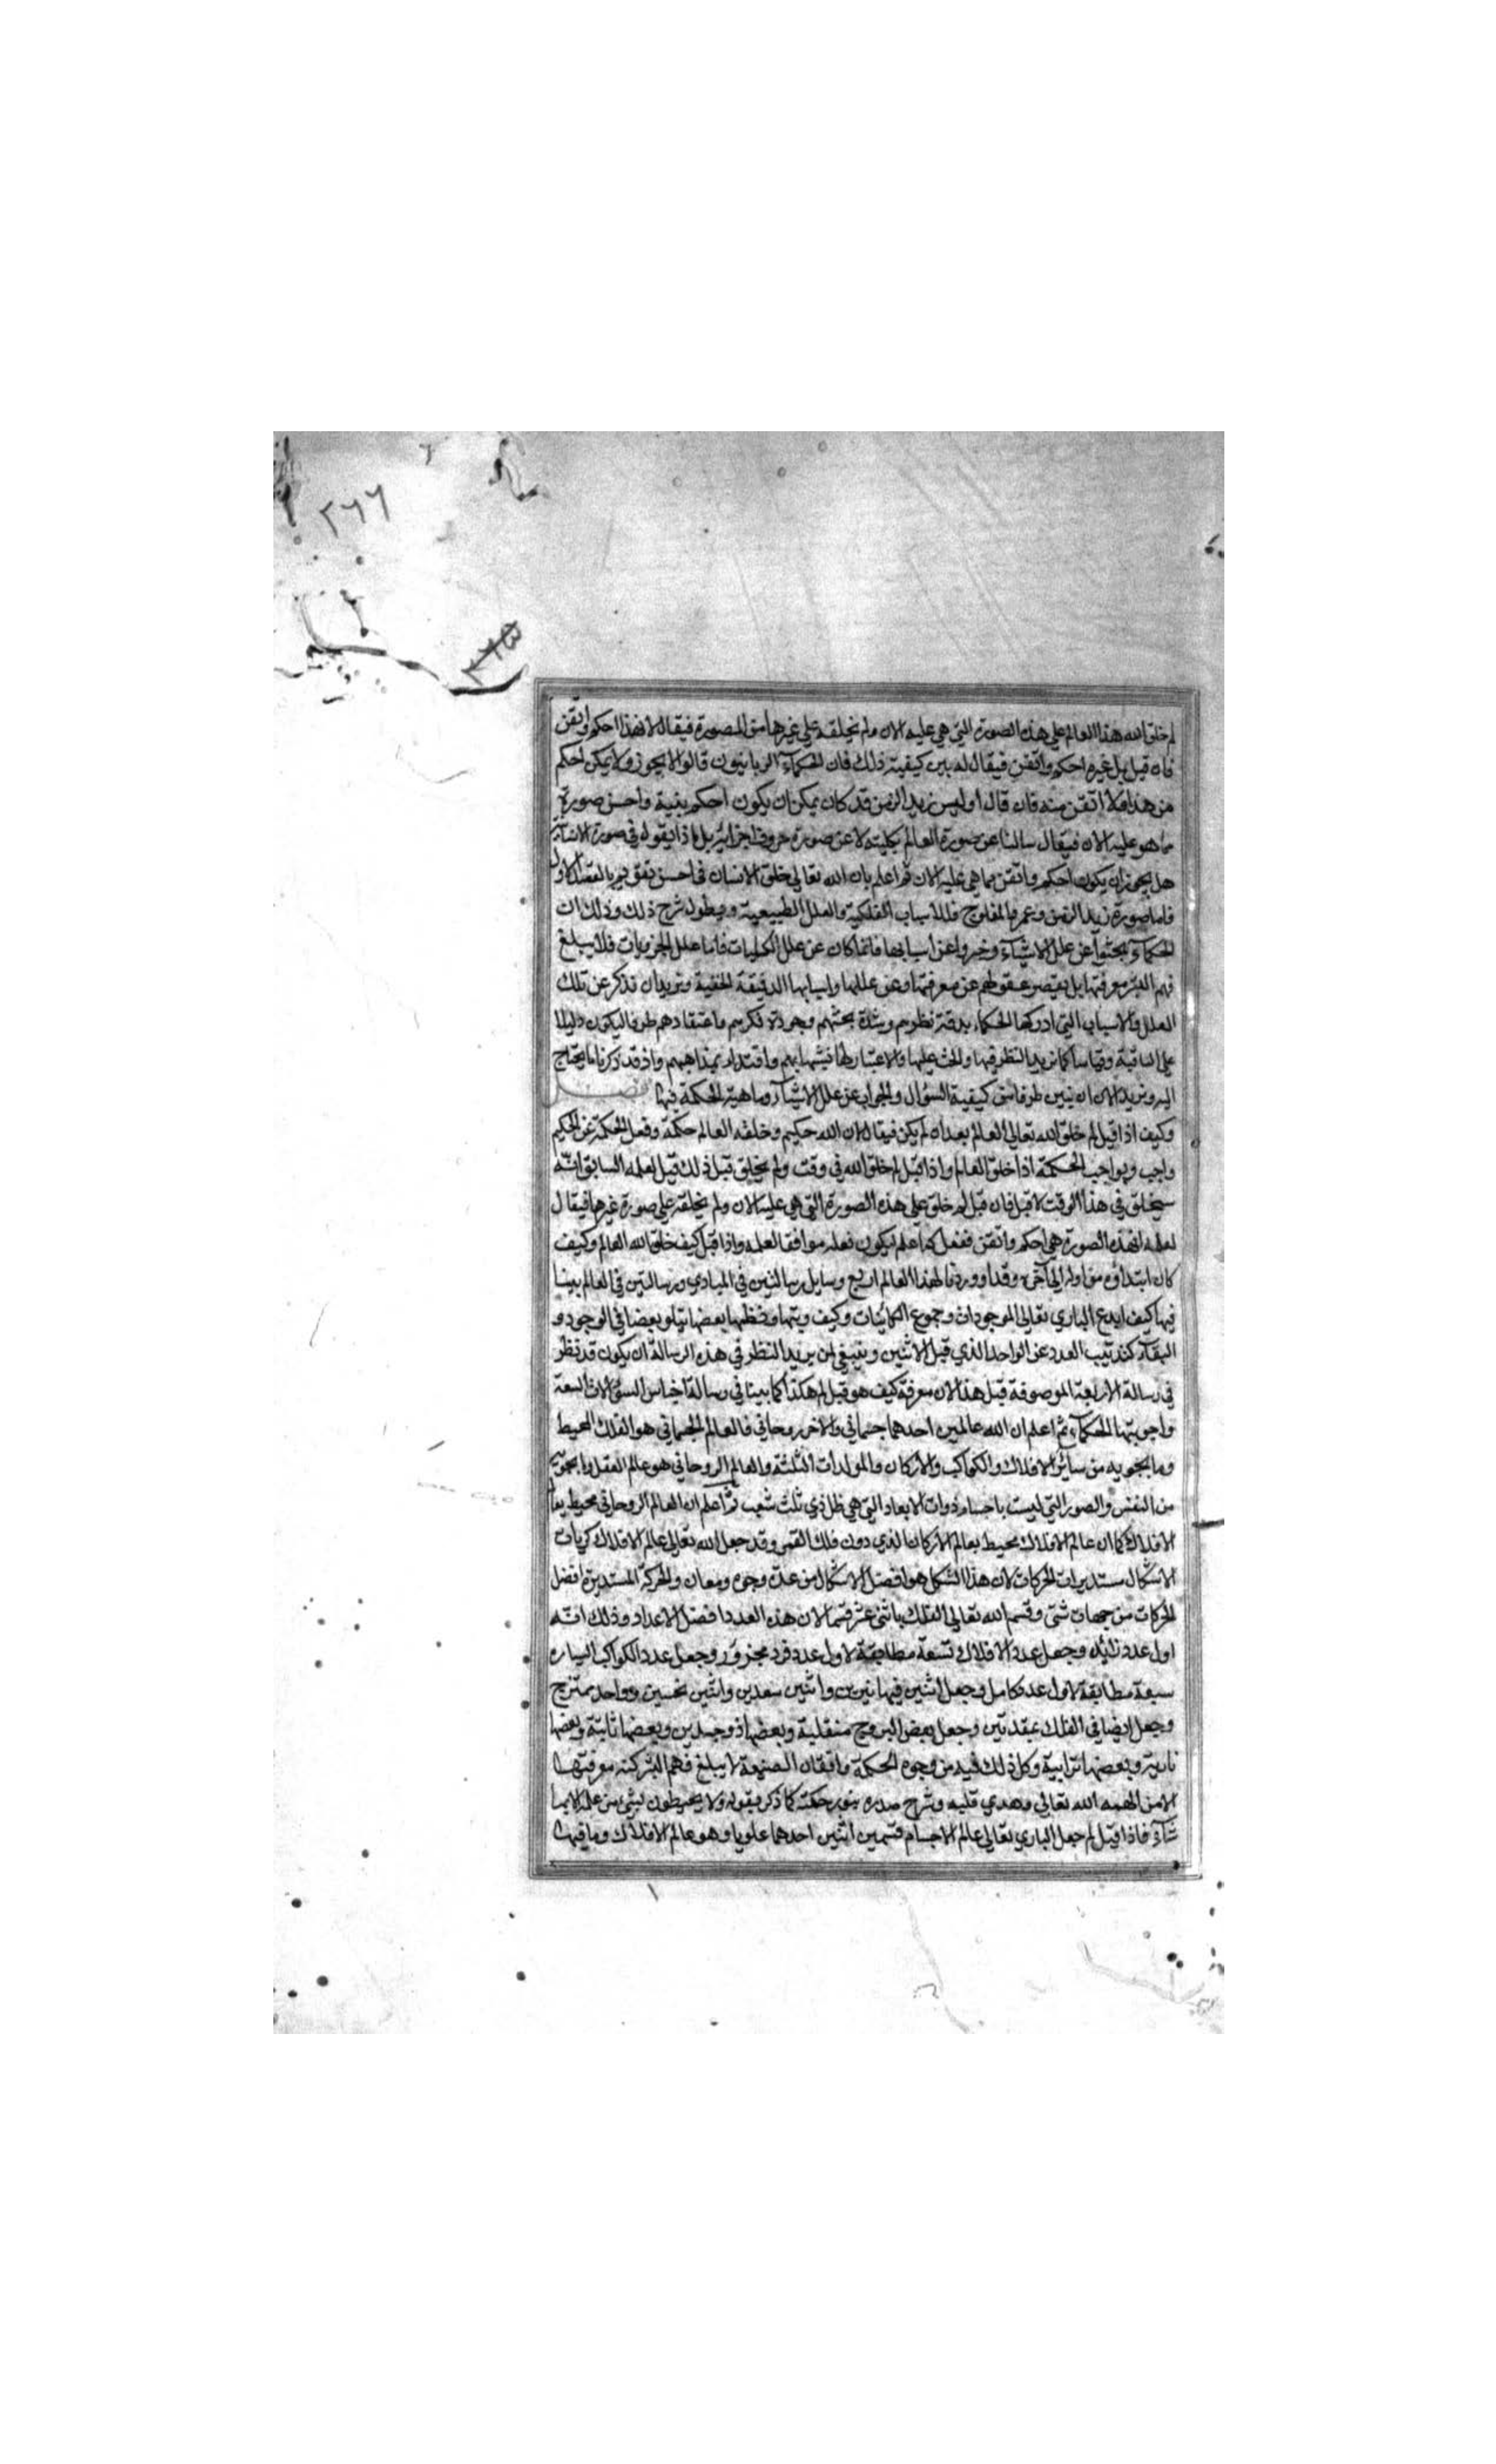 ٢٦٦
٢٦٥
لم خلق الله هذا العالم علي هذه الصورة التي هي عليه الان ولم يخلقه علي غيرها من الصورة فيقال لان هذا احكم واتقن
فان قيل بل غيره احكم واتقن فيقال له بين كيفية ذلك فان الحكماء الربانيون قالوا لا يجوز ولا يمكن احكم
من هذا ولا اتقن منه فان قال اوليس زيد الزمن قد كان يمكن ان يكون احكم بنية واحسن صورة
مما هو عليه الان فيقال سالنا عن صورة العالم بكليته لا عن صورة جزو من اجزائه بل ماذا يقوله في صورة الانسان
هل يجوز ان يكون احكم واتقن مما هي عليه الان ثم اعلم بان الله تعالي خلق الانسان في احسن تقويم بالقصد الاول
فاما صورة زيد الزمن وعمر والمفلوج فللاسباب الفلكية والعلل الطبيعية ويطول شرح ذلك وذلك ان
الحكماء بحثوا عن علل الاشياء وخبروا عن اسبابها فانما كان عن علل الكليات فاما علل الجزويات فلا يبلغ
فهم البشر معرفتها بل يقصر عقولهم عن معرفتها وعن عللها واسبابها الدقيقة الخفية ونريد ان نذكر عن تلك
العلل والاسباب التي ادركها الحكماء بدقة نظرهم وشدة بحثهم وجودة فكرهم واعتقادهم طرفا ليكون دليلا
علي الباقية وقياسا كما نريد النظر فيها والحث عليها والاعتبار لها تشبها بهم واقتداء بمذاهبهم واذ قد ذكرنا ما يحتاج
اليه ونريد الان ان نبين طرفا من كيفية السؤال والجواب عن علل الاشياء وماهية الحكمة فيها فصل
وكيف اذا قيل لم خلق الله تعالي العالم بعد ان لم يكن فيقال لان الله حكيم وخلقه العالم حكمة وفعل الحكمة عن الحكيم
واجب وبواجب الحكمة اذا خلق العالم واذا قيل لم خلق الله في وقت ولم يخلق قبل ذلك قيل لعلمه السابق انه
سيخلق في هذا الوقت لا قبل فان قيل لم خلق علي هذه الصورة التي هي عليه الان ولم يخلقه علي صورة غيرها فيقال
لعلمه ان هذه الصورة هي احكم واتقن ففعل كما علم ليكون فعله موافقا لعلمه واذا قيل كيف خلق الله العالم وكيف
كان ابتداؤه من اوله الي آخره وقد اوردنا لهذا العالم اربع رسايل رسالتين في المبادي ورسالتين في العالم بينا
فيها كيف ابدع الباري تعالي الموجودات وجموع الكائنات وكيف رتبها ونظمها بعضها يتلو بعضا في الوجود و
البقاء كترتيب العدد عن الواحد الذي قبل الاثنين وينبغي لمن يريد النظر في هذه الرسالة ان يكون قد نظر
في رسالة الاربعة الموصوفة قبل هذا لان معرفة كيف هو قبل لم هكذا كما بينا في رسالة اجناس السؤالات التسعة
واجوبتها للحكماء ثم اعلم ان الله عالمين احدهما جسماني والاخر روحاني فالعالم الجسماني هو الفلك المحيط
وما يحويه من سائر الافلاك والكواكب والاركان والمولدات الثلثة والعالم الروحاني هو عالم العقل وما يحويه
من النفس والصور التي ليست باجسام ذوات الابعاد التي هي ظل ذي ثلث شعب ثم اعلم ان العالم الروحاني محيط بعالم
الافلاك كما ان عالم الافلاك محيط بعالم الاركان الذي دون فلك القمر وقد جعل الله تعالي عالم الافلاك كريات
الاشكال مستديرات الحركات لان هذا الشكل هو افضل الاشكال من عدة وجوه ومعان والحركة المستديرة افضل
الحركات من جهات شتي وقسم الله تعالي الفلك باثني عشر قسما لان هذه العدد افضل الاعداد وذلك انه
اول عدد زائد وجعل عدد الافلاك تسعة مطابقة لاول عدد فرد مجذور وجعل عدد الكواكب السياره
سبعة مطابقة لاول عدد كامل وجعل اثنين فيها نيرين واثنين سعدين واثنين نحسين وواحد ممتزج
وجعل ايضا في الفلك عقدتين وجعل بعض البروج منقلبة وبعضها ذو جسدين وبعضها ثابتة وبعضها
نارية وبعضها ترابية وكل ذلك فيه من وجوه الحكمة واتقان الصنعة لا يبلغ فهم البشر كنه معرفتها
الا من الهمه الله تعالي وهدي قلبه وشرح صدره بنور حكمته كما ذكر بقوله ولا يحيطون بشئ من علمه الا بما
شاء فاذا قيل لم جعل الباري تعالي عالم الاجسام قسمين اثنين احدهما علويا وهو عالم الافلاك وما فيها